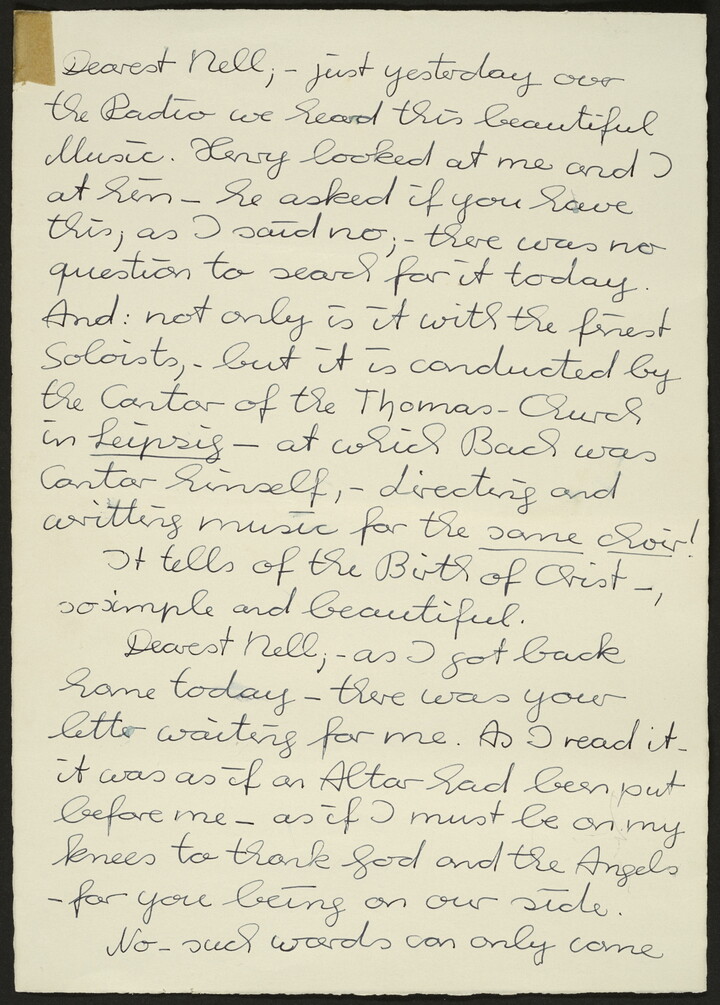 Dearest Nell; - just yesterday over
the Radio we heard this beautiful
Music. Henry looked at me and I
at him - he asked if you have
this; as I said no; - there was no
question to search for it today.
And: not only is it with the finest
Soloists, - but it is conducted by
the Cantor of the Thomas-Church
in Leipsig - at which Bach was
Cantor himself, - directing and
writting music for the same choir!
It tells of the Birth of Christ -,
so simple and beautiful.
Dearest Nell; - as I got back
home today - there was your
letter waiting for me. As I read it -
it was as if an Altar had been put
before me - as if I must be on my
knees to thank God and the Angels
- for you being on our side.
No - such words can only come